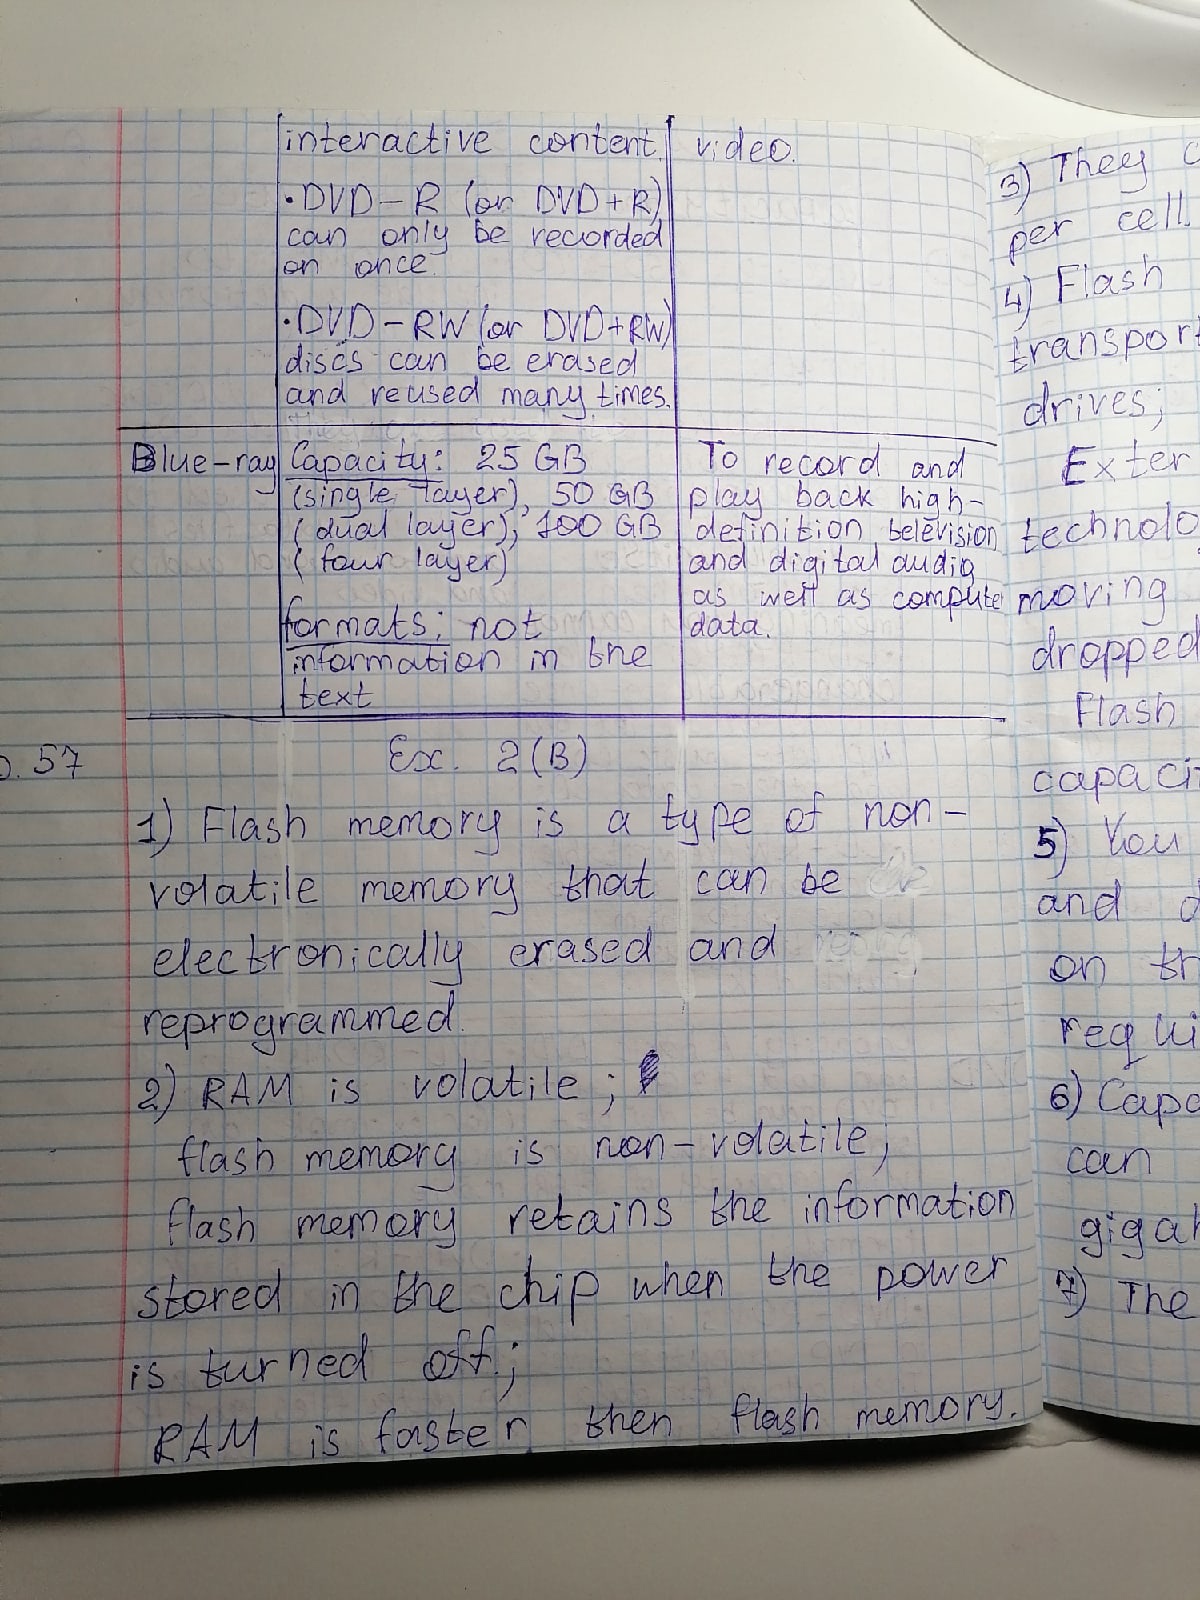 interactive content.
• DVD-R (or DVD+R)
can only be recorded
on once
• DVD-RW (or DVD+RW)
discs can be erased
and reused many times.
video.
Blue-ray
Capacity: 25 GB
(single layer), 50 GB
(dual layer), 100 GB
(four layer)
formats: not
information in the
text
To record and
play back high-
definition television
and digital audio
as well as compute
data.
p. 57
Ex. 2(B)
1) Flash memory is a type of non-
volatile memory that can be
electronically erased and
reprogrammed.
2) RAM is volatile;
flash memory is non-volatile;
flash memory retains the information
stored in the chip when the power
is turned off.;
RAM is faster then flash memory.
3) They c
per cell.
4) Flash
transport
drives;
Exter
technolo
moving
dropped
Flash
capaci
5) You
and d
on th
requi
6) Capa
can
gigah
7) The